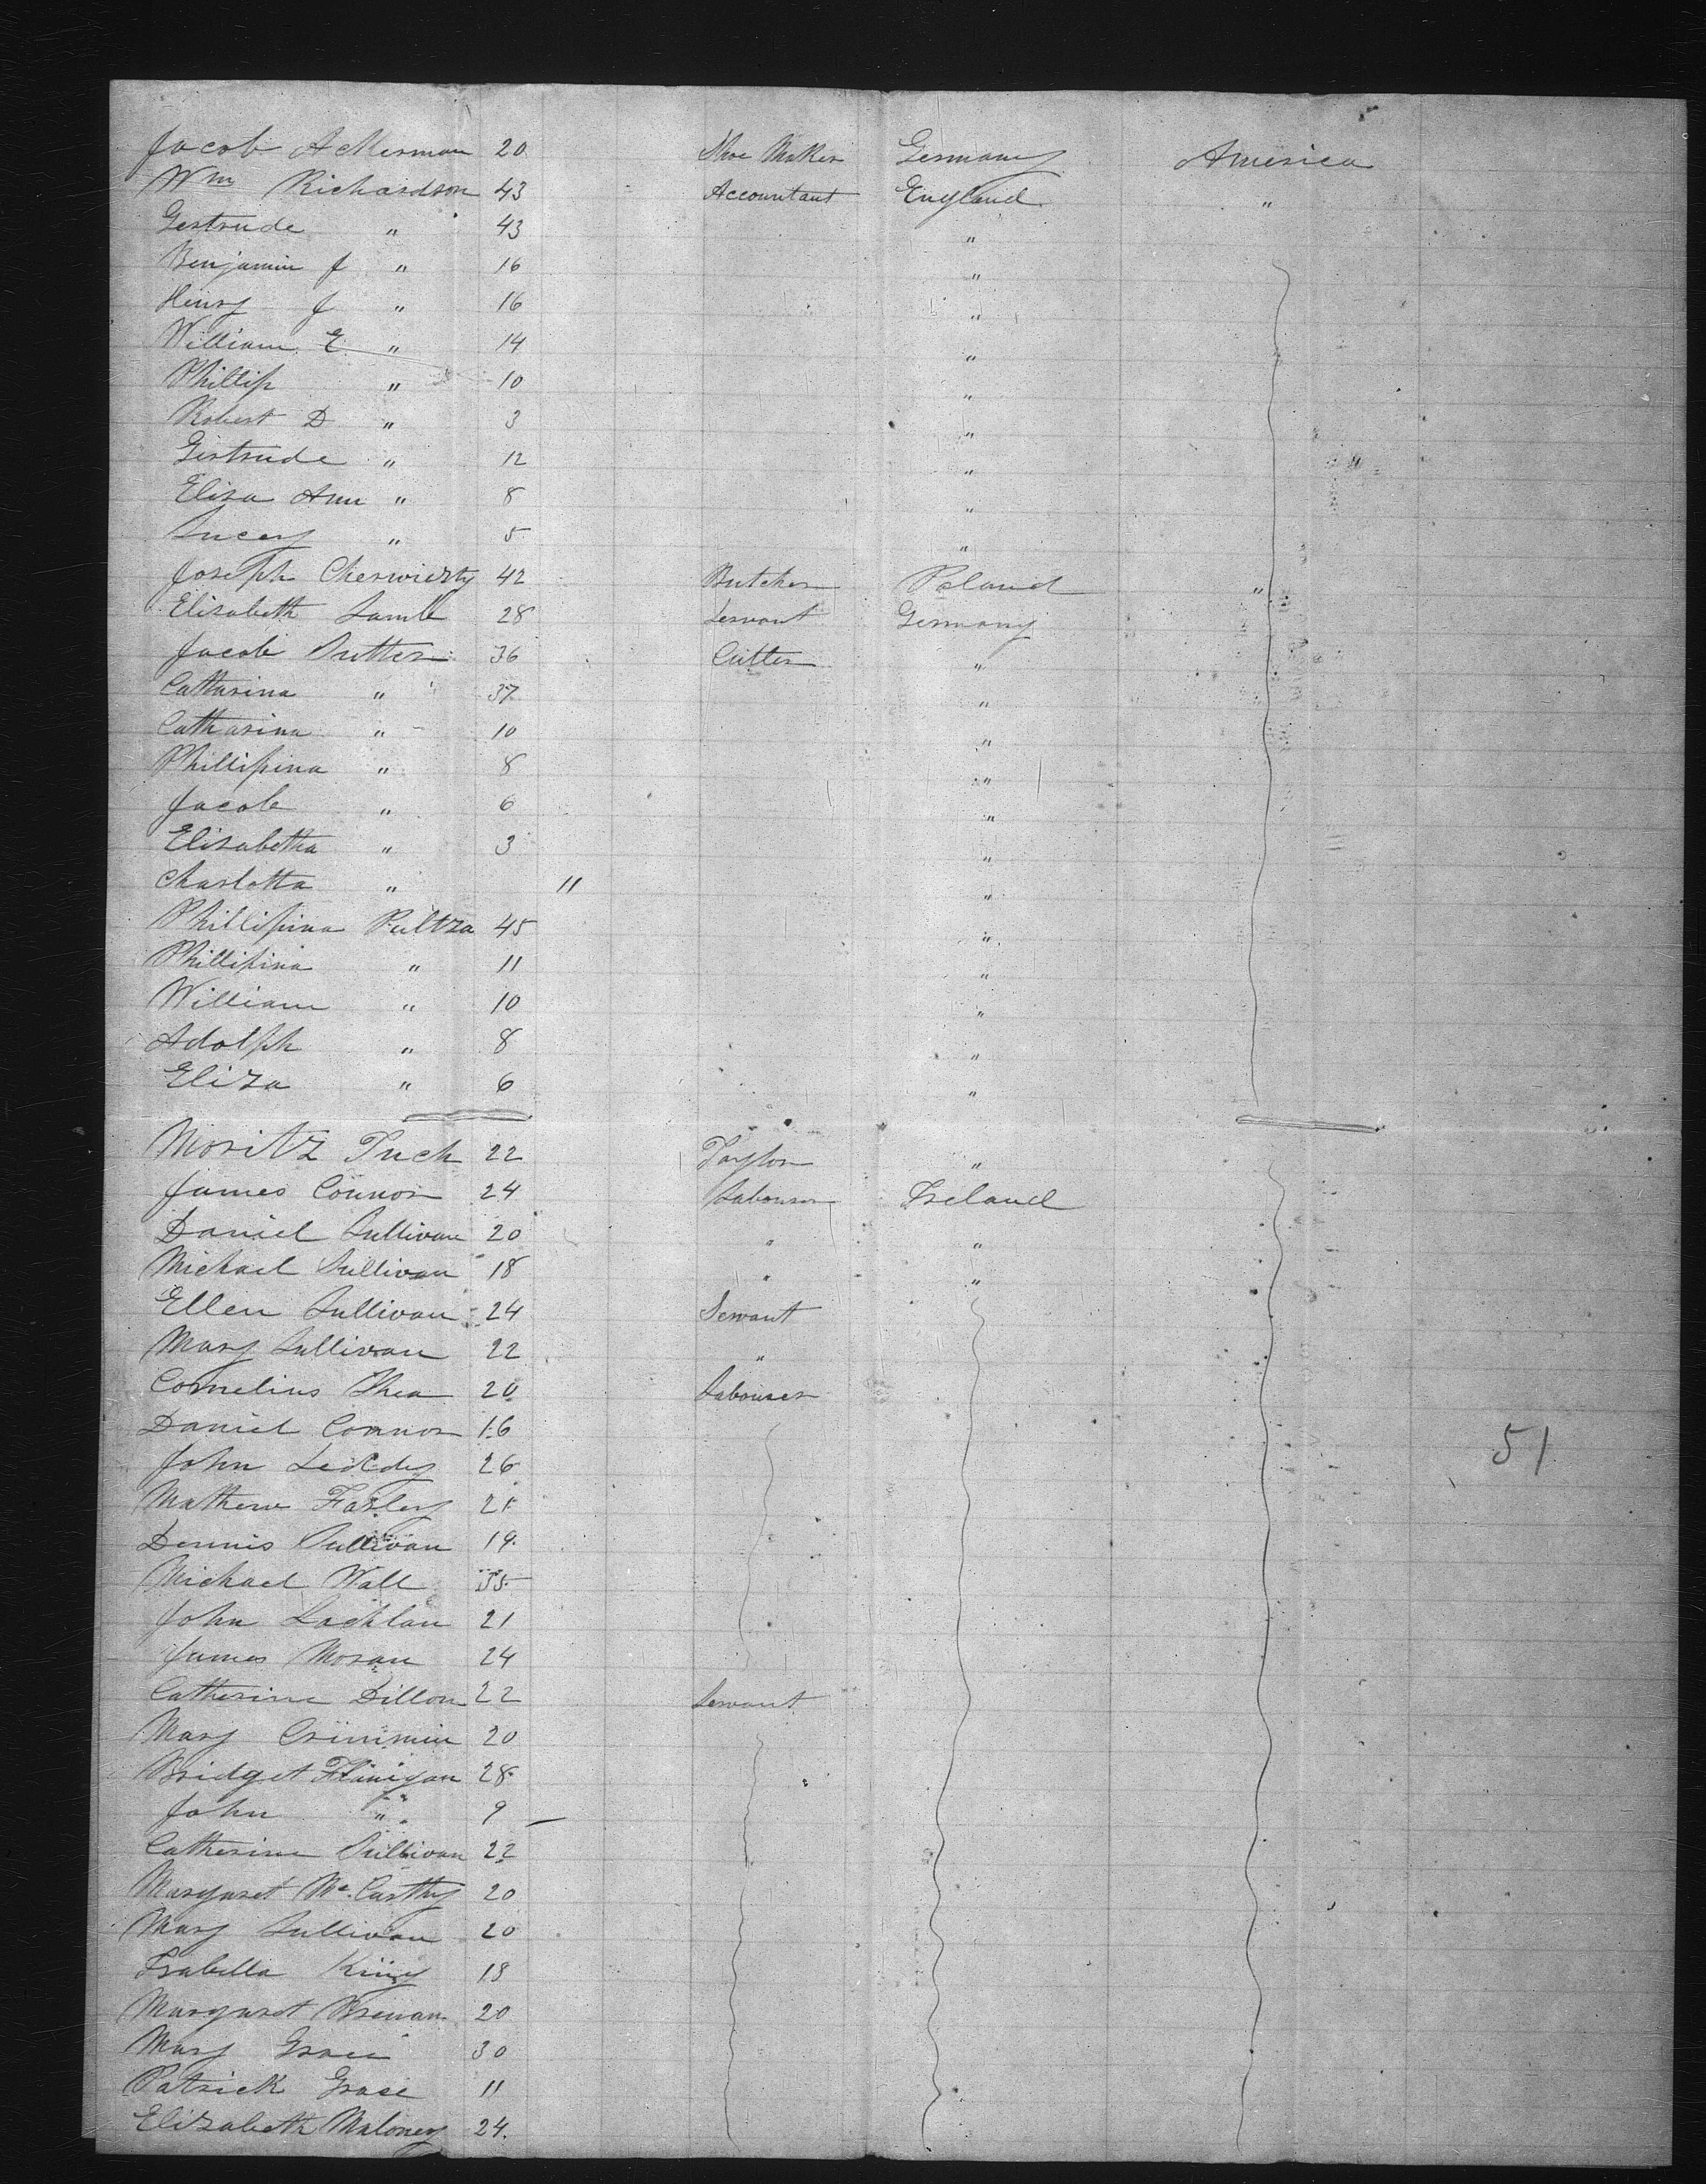 Jacob Ackerman 20 Shoe Maker Germany America
Wm Richardson 43 Accountant England "
Gertrude " 43 "
Benjamin J " 16 "
Henry J " 16 "
William E " 14 "
Phillip " 10 "
Robert D " 3 "
Gertrude " 12 "
Eliza Ann " 8 "
Lucey " 5 "
Joseph 42 Butcher Poland "
Elizabeth Lamb 28 Servant Germany
Jacob Sutter 36 Cutter "
Catharina " 37 "
Catharina " 10 "
Phillipina " 8 "
Jacob " 6 "
Elizabetha " 3 "
Charlotta " 11 "
Phillipina Pultza 45 "
Phillipina " 11 "
William " 10 "
Adolph " 8 "
Eliza " 6 "
Moritz Tuch 22 Taylor "
James Connor 24 Labourer Ireland
Daniel Sullivan 20 " "
Michael Sullivan 18 " "
Ellen Sullivan 24 Servant
Mary Sullivan 22 "
Cornelius Shea 20 Labourer
Daniel Connor 16
John Leddy 26 51
Mathew Farley 21
Dennis Sullivan 19
Michael Wall 35
John Lachlan 21
James Moran 24
Catherine Dillon 22 Servant
Mary Crimmin 20
Bridget Flanigan 28
John " 9
Catherine Sullivan 22
Margaret McCarthy 20
Mary Sullivan 20
Isabella King 18
Margaret Brenan 20
Mary Grace 30
Patrick Grace 11
Elizabeth Maloney 24